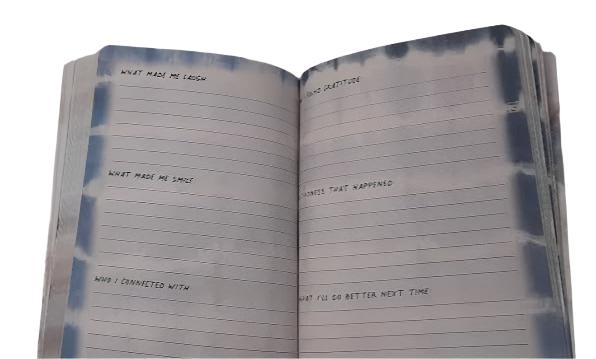 WHAT MADE ME LAUGH
WHAT MADE ME SMILE
WHO I CONNECTED WITH
GRATITUDE
THAT HAPPENED
I'LL DO BETTER NEXT TIME